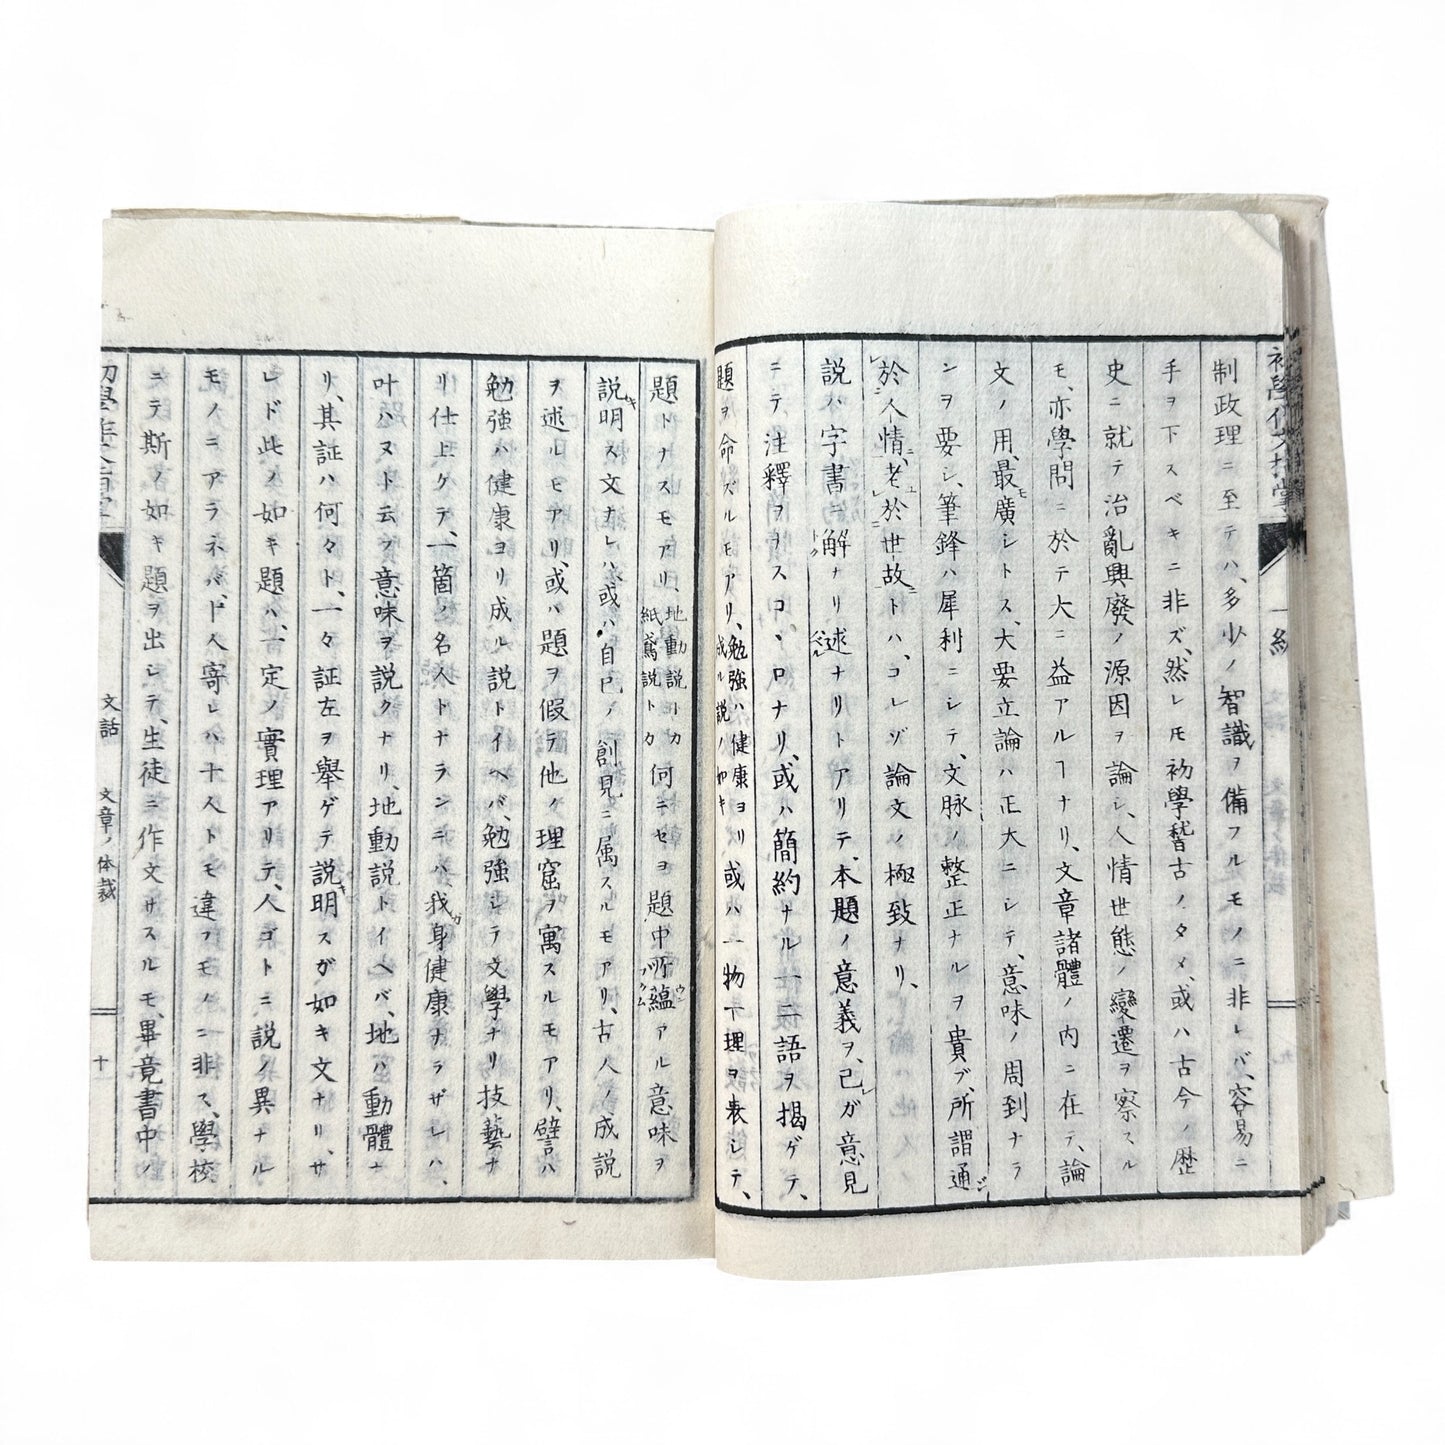 制政理ニ至テハ、多少ノ智識ヲ備フルモノニ非レバ、容易ニ
手ヲ下スベキニ非ズ、然レ𪜈初學稽古ノタメ、或ハ古今ノ歴
史ニ就テ治亂興廢ノ源因ヲ論シ、人情世態ノ變遷ヲ察スル
モ、亦學問ニ於テ大ニ益アルヿナリ、文章諸體ノ内ニ在テ、論
文ノ用、最モ廣シトス、大要立論ハ正大ニシテ、意味ノ周到ナラ
ンヲ要シ、筆鋒ハ犀利ニシテ、文脉ノ整正ナルヲ貴ブ、所謂通ジ
於人情ニ、老ユ於世故ニトハ、コレゾ論文ノ極致ナリ、
説ハ字書ニ解トクナリ述ノベルナリトアリテ、本題ノ意義ヲ、己レガ意見
ニテ注釋ヲナスコヽロナリ、或ハ簡約ナル一二語ヲ揭ゲテ、
題ヲ命ズルモアリ、勉強ハ健康ヨリ成ル説ノ如キ或ハ一物一理ヲ表シテ、
題トナスモアリ、地動説トカ紙鳶説トカ何ニセヨ題中所蘊ウンフクムアル意味ヲ
説キ明ス文ナレハ或ハ自己ノ創見ニ属スルモアリ、古人ノ成説
ヲ述ルモアリ、或ハ題ヲ假テ他ノ理窟ヲ寓スルモアリ、譬ハ
勉強ハ健康ヨリ成ル説トイヘバ、勉強シテ文學ナリ技藝ナ
リ仕上ゲテ、一箇ノ名人トナランニハ我ガ身健康ナラザレハ、
叶ハヌト云フ意味ヲ説クナリ、地動説トイヘバ、地ハ動體ナ
リ、其証ハ何々ト、一々証左ヲ舉ゲテ説キ明スガ如キ文ナリ、サ
レド此ノ如キ題ハ、一定ノ實理アリテ、人ゴトニ説ノ異ナル
モノニアラネバ、十人寄レハ十人トモ違フモノニ非ス、學校
ニテ斯ノ如キ題ヲ出シテ、生徒ニ作文サスルモ、畢竟書中ノ
文話 文章ノ体裁 十